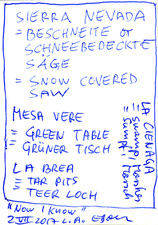 SIERRA NEVADA
= BESCHNEITE or
SCHNEEBEDECKTE
SÄGE
= SNOW COVERED
SAW
MESA VERE
= GREEN TABLE
= GRÜNER TISCH
LA BREA
= TAR PITS
TEER LOCH
LA CIENAGA
= swamp, Marshes
= Sumpf, Marsch
"Now I Know"
2 VII 2017 L.A.